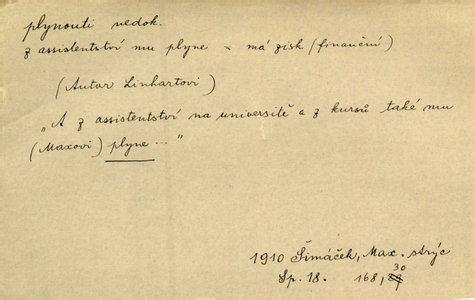 plynouti nedok.
z assistentství mu plyne = má zisk (finanční)
(Autor Linhartovi)
„A z assistentství na universitě a z kursů také mu
(Maxovi) plyne ... "
1910 Šimáček, Max. strýc
Sp. 18. 168, 30